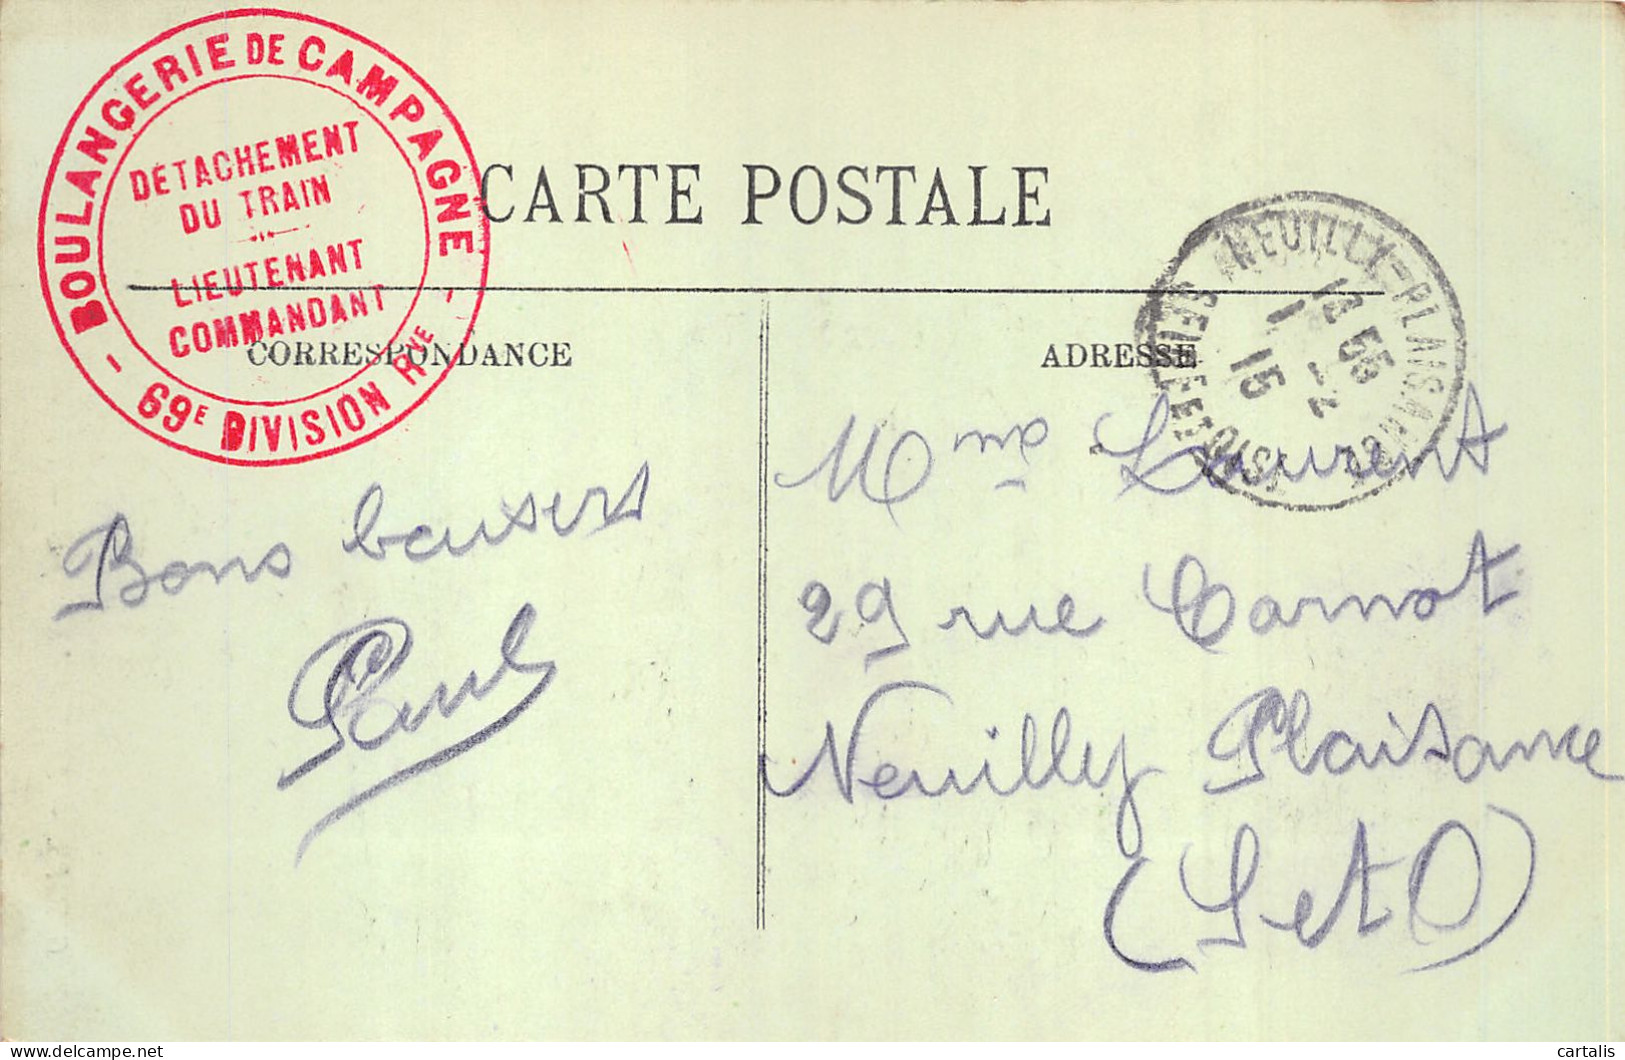 BOULANGERIE DE CAMPAGNE
DÉTACHEMENT
DU TRAIN
LIEUTENANT
COMMANDANT
- 69E DIVISION RVE -
CARTE POSTALE
CORRESPONDANCE
ADRESSE
NEUILLY-PLAISANCE
18 55
1 - 2
15
SEINE-ET-OISE
Bons baisers
Paul
Mme Laurent
29 rue Carnot
Neuilly Plaisance
(S et O)
cartalis